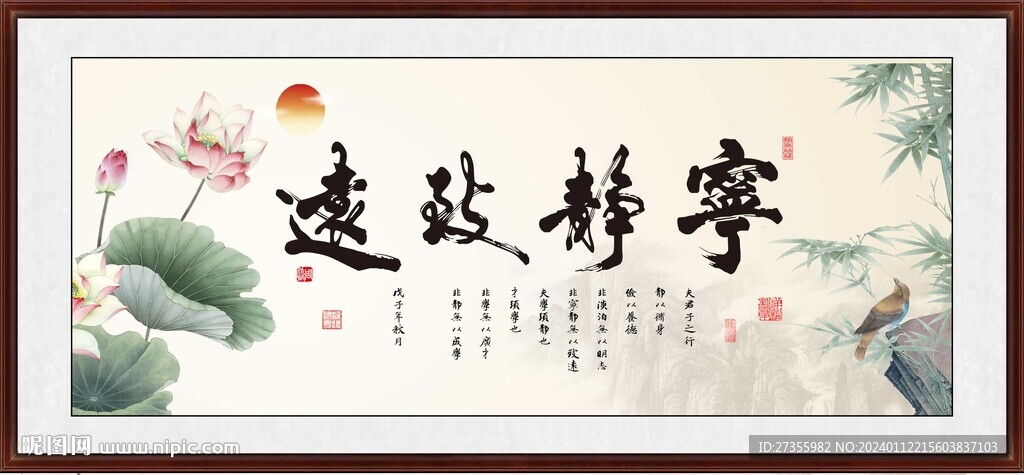 寧靜致遠
夫君子之行
靜以脩身
儉以養德
非澹泊無以明志
非寧靜無以致遠
夫學須靜也
才須學也
非學無以廣才
非靜無以成學
戊子年秋月
昵图网 www.nipic.com
ID:27355982 NO:20240112215603837103